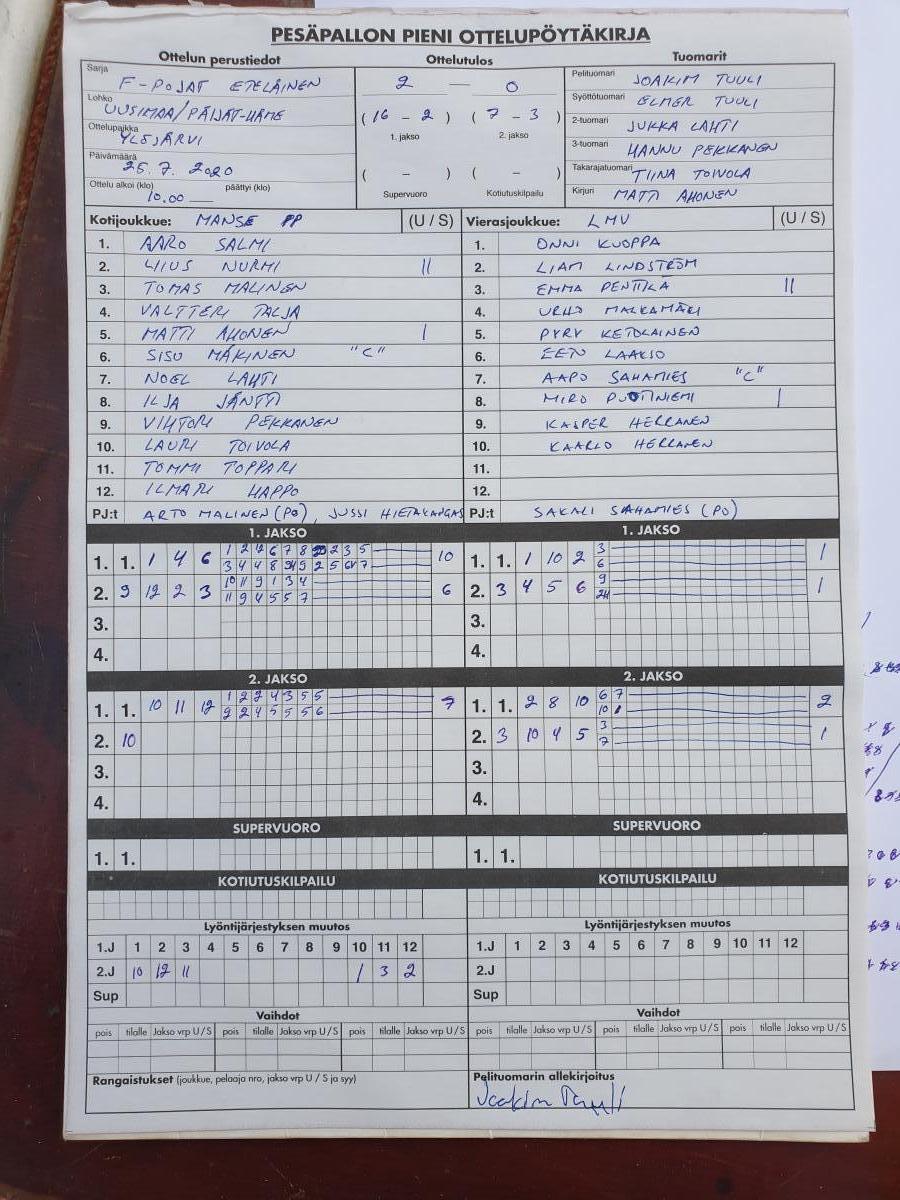 PESÄPALLON PIENI OTTELUPÖYTÄKIRJA
Ottelun perustiedot
Sarja F-POJAT ETELÄINEN
Lohko UUSIMAA/PÄIJÄT-HÄME
Ottelupaikka YLEJÄRVI
Päivämäärä 25.7.2020
Ottelu alkoi (klo) 10.00 päättyi (klo)
Ottelutulos
2 — 0
(16 - 2) (7 - 3)
1. jakso 2. jakso
( - ) ( - )
Supervuoro Kotiutuskilpailu
Tuomarit
Pelituomari JOAKIM TUULI
Syöttötuomari ELMER TUULI
2-tuomari JUKKA LAHTI
3-tuomari HANNU PEKKANEN
Takarajatuomari TIINA TOIVOLA
Kirjuri MATTI AHONEN
Kotijoukkue: MANSE PP (U / S)
1. AARO SALMI
2. NURMI ||
3. TOMAS MALINEN
4. VALTTERI TALJA
5. MATTI AHONEN |
6. SISU MÄKINEN "C"
7. NOEL LAHTI
8. ILJA JÄNTTI
9. VIHTORI PEKKANEN
10. LAURI TOIVOLA
11. TOMMI TOPPARI
12. ILMARI HAPPO
PJ:t ARTO MALINEN (PO), JUSSI HIETAKANGAS
Vierasjoukkue: LMV (U / S)
1. ONNI KUOPPA
2. LIAM LINDSTRÖM
3. EMMA PENTTILÄ ||
4. URHO MALKAMÄKI
5. PYRY KETOLAINEN
6. EEN LAAKSO
7. AAPO SAHAMIES "C"
8. MIRO |
9. KASPER HERRANEN
10. KAARLO HERRANEN
11.
12.
PJ:t SAKALI SAHAMIES (PO)
1. JAKSO
1. 1. 1 4 6 10
2. 9 12 2 3 10 11 9 1 3 4 6
11 9 4 5 5 7
3.
4.
1. JAKSO
1. 1. 1 10 2 3 1
6
2. 3 4 5 6 9 1
3.
4.
2. JAKSO
1. 1. 10 11 12 1 2 2 4 3 5 5 7
2 2 4 5 5 5 6
2. 10
3.
4.
2. JAKSO
1. 1. 2 8 10 6 7 2
10
2. 3 10 4 5 3 1
7
3.
4.
SUPERVUORO
1. 1.
SUPERVUORO
1. 1.
KOTIUTUSKILPAILU
KOTIUTUSKILPAILU
Lyöntijärjestyksen muutos
1.J 1 2 3 4 5 6 7 8 9 10 11 12
2.J 10 12 11 1 3 2
Sup
Lyöntijärjestyksen muutos
1.J 1 2 3 4 5 6 7 8 9 10 11 12
2.J
Sup
Vaihdot
pois tilalle Jakso vrp U / S pois tilalle Jakso vrp U / S pois tilalle Jakso vrp U / S
Vaihdot
pois tilalle Jakso vrp U / S pois tilalle Jakso vrp U / S pois tilalle Jakso vrp U / S
Rangaistukset (joukkue, pelaaja nro, jakso vrp U / S ja syy)
Pelituomarin allekirjoitus
Joakim Tuuli